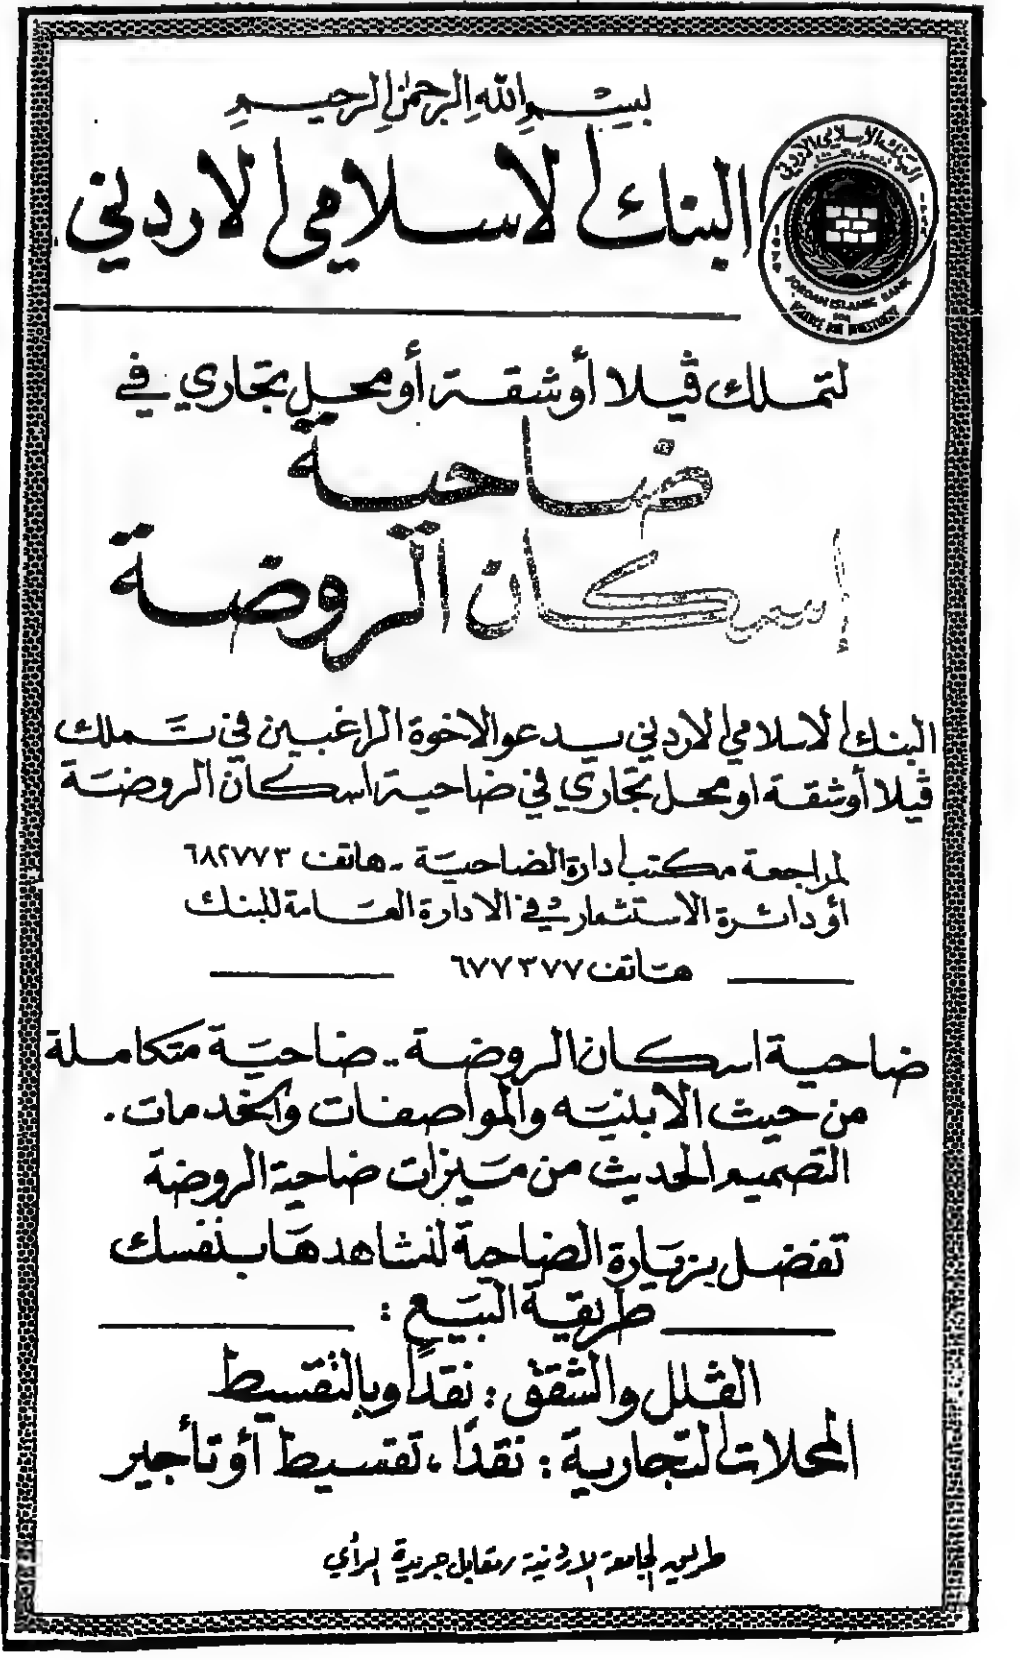 بسم الله الرحمن الرحيم
البنك الاسلامي الاردني
البنك الاسلامي الاردني
JORDAN ISLAMIC BANK
FOR
FINANCE AND INVESTMENT
لتملك ڤيلا أو شقة أو محل تجاري في
ضاحية
إسكان الروضة
البنك الاسلامي الاردني يدعو الاخوة الراغبين في تملك
ڤيلا أو شقة او محل تجاري في ضاحية اسكان الروضة
لمراجعة مكتب ادارة الضاحية - هاتف ٦٨٢٧٧٣
أو دائرة الاستثمار في الادارة العامة للبنك
هاتف ٦٧٧٣٧٧
ضاحية اسكان الروضة .. ضاحية متكاملة
من حيث الابنيه والمواصفات والخدمات .
التصميم الحديث من ميزات ضاحية الروضة
تفضل بزيارة الضاحية لتشاهدها بنفسك
طريقة البيع :
الڤلل والشقق : نقدا وبالتقسيط
المحلات التجارية : نقدًا ، تقسيط أو تأجير
طريق الجامعة الاردنية مقابل جريدة الرأي